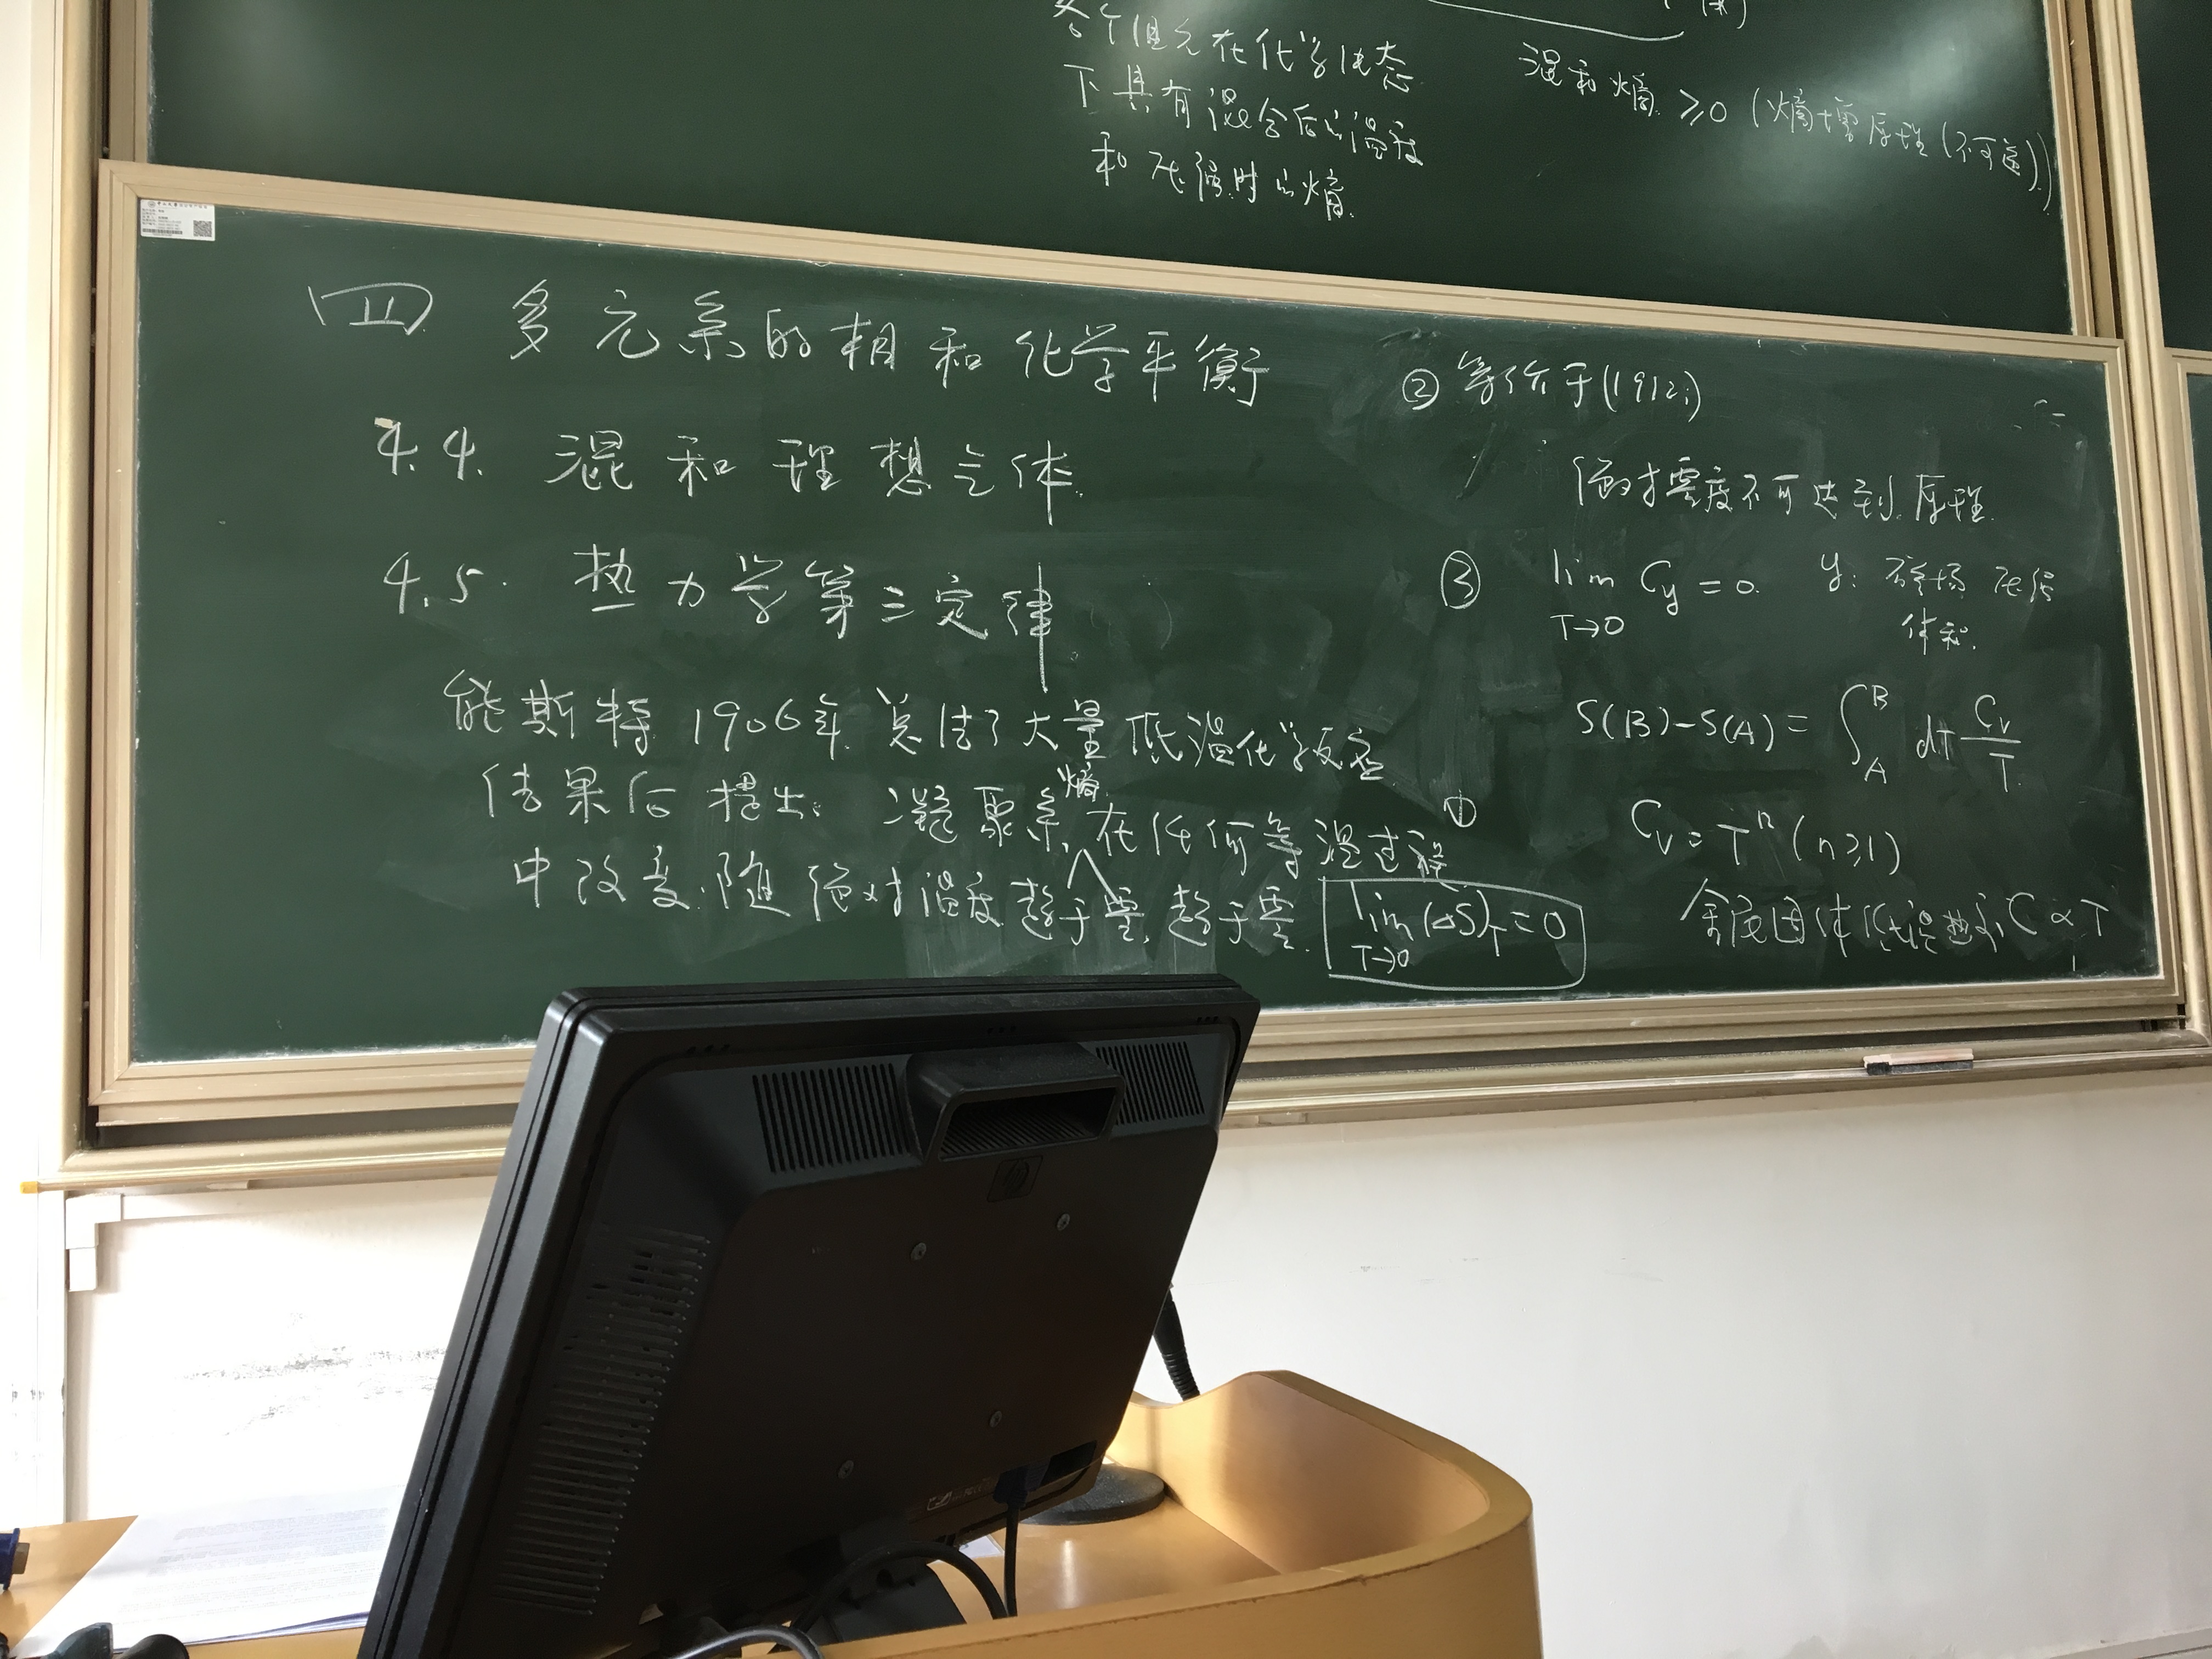 各个组元在化学纯态
下具有混合后的温度
和压强时的熵.
混和熵 ≥0 (熵增原理(不可逆))
四 多元系的相和化学平衡
4.4. 混和理想气体.
4.5. 热力学第三定律.
能斯特 1906年 总结了大量低温化学反应
结果后提出: 凝聚系熵在任何等温过程
中改变,随绝对温度趋于零,趋于零.
① lim (ΔS)_T = 0
T→0
② 等价于(1912;)
绝对零度不可达到原理.
③ lim C_y = 0. y: 磁场 压强
T→0 体积.
S(B)-S(A) = ∫_A^B dT C_V/T
C_V = T^n (n≥1)
金属固体低温热容 C ∝ T